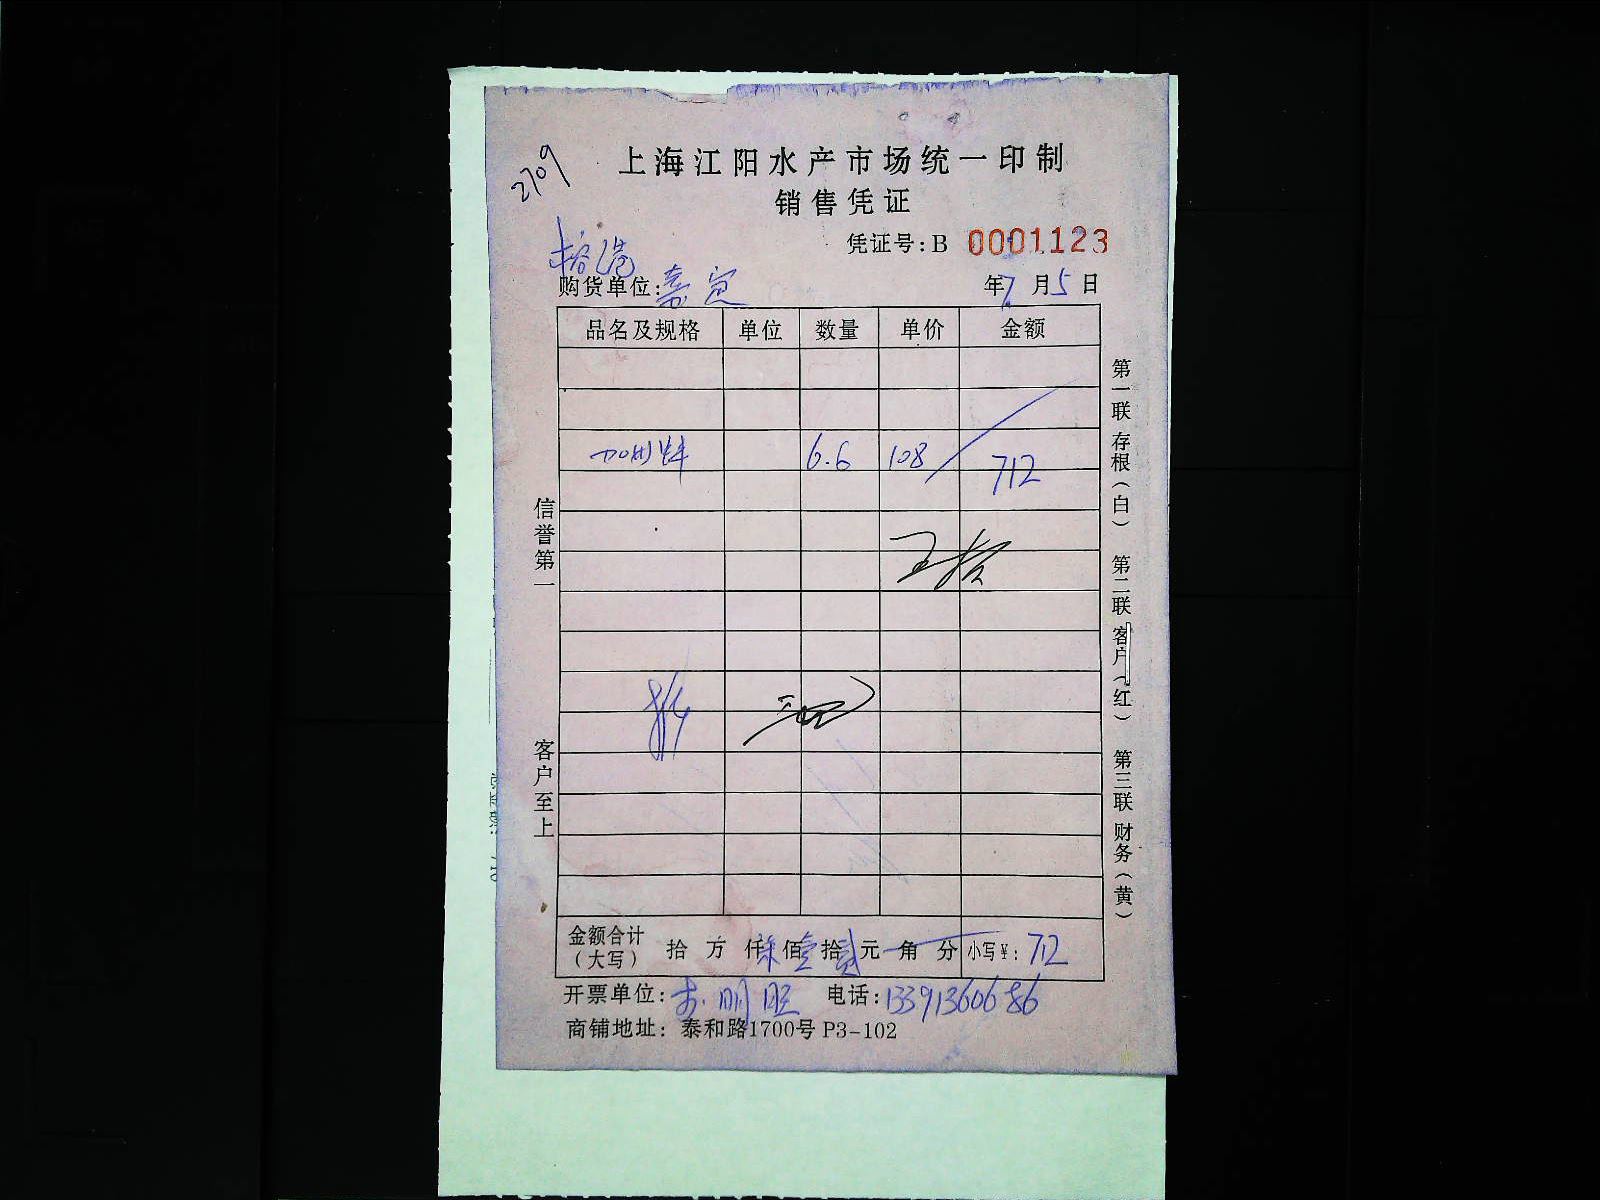 2709
上海江阳水产市场统一印制
销售凭证
凭证号:B 0001123
榕港
购货单位:嘉定
年7月5日
品名及规格 单位 数量 单价 金额
加州蚌 6.6 108 712
信誉第一
客户至上
第一联 存根(白) 第二联 客户(红) 第三联 财务(黄)
金额合计(大写) 拾 万 仟 柒 佰 壹 拾 贰 元 角 分 小写¥: 712
开票单位: 明旺 电话:13391360686
商铺地址: 泰和路1700号 P3-102